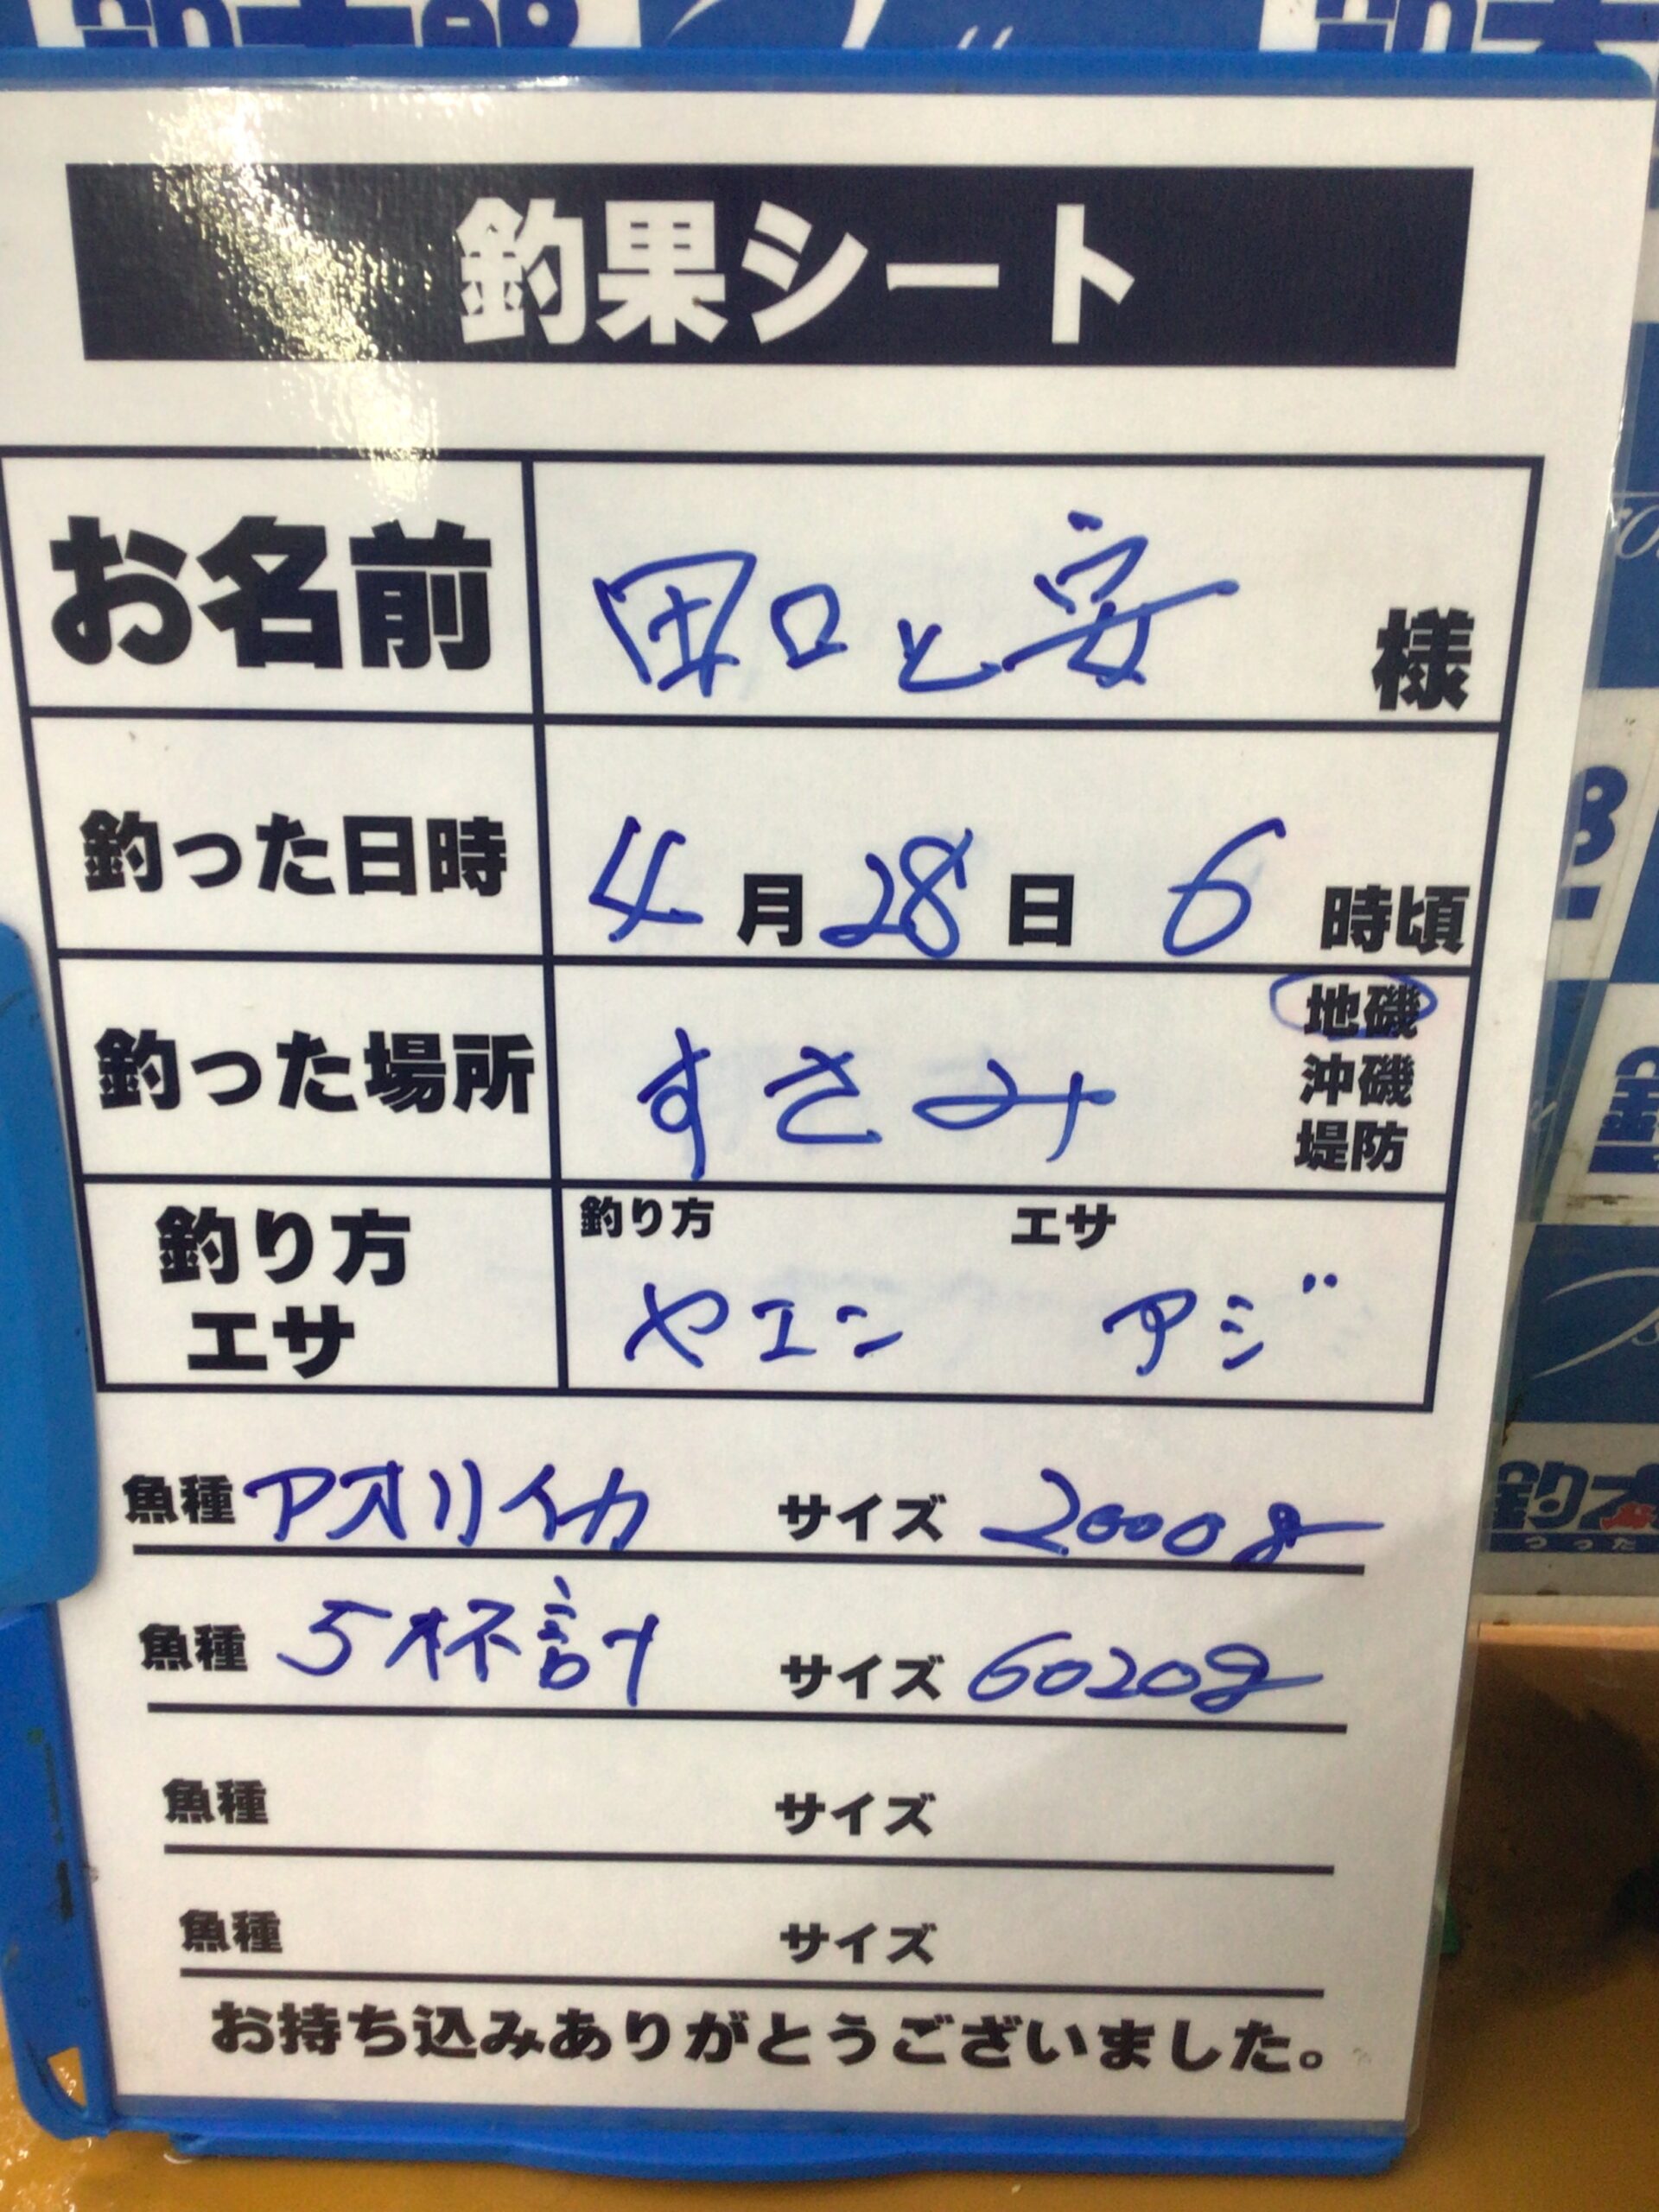 釣果シート
お名前 田口と安 様
釣った日時 4月28日 6時頃
釣った場所 すさみ 地磯
沖磯
堤防
釣り方 エサ
釣り方 ヤエン エサ アジ
魚種 アオリイカ サイズ 2000g
魚種 5杯計 サイズ 6020g
魚種 サイズ
魚種 サイズ
お持ち込みありがとうございました。